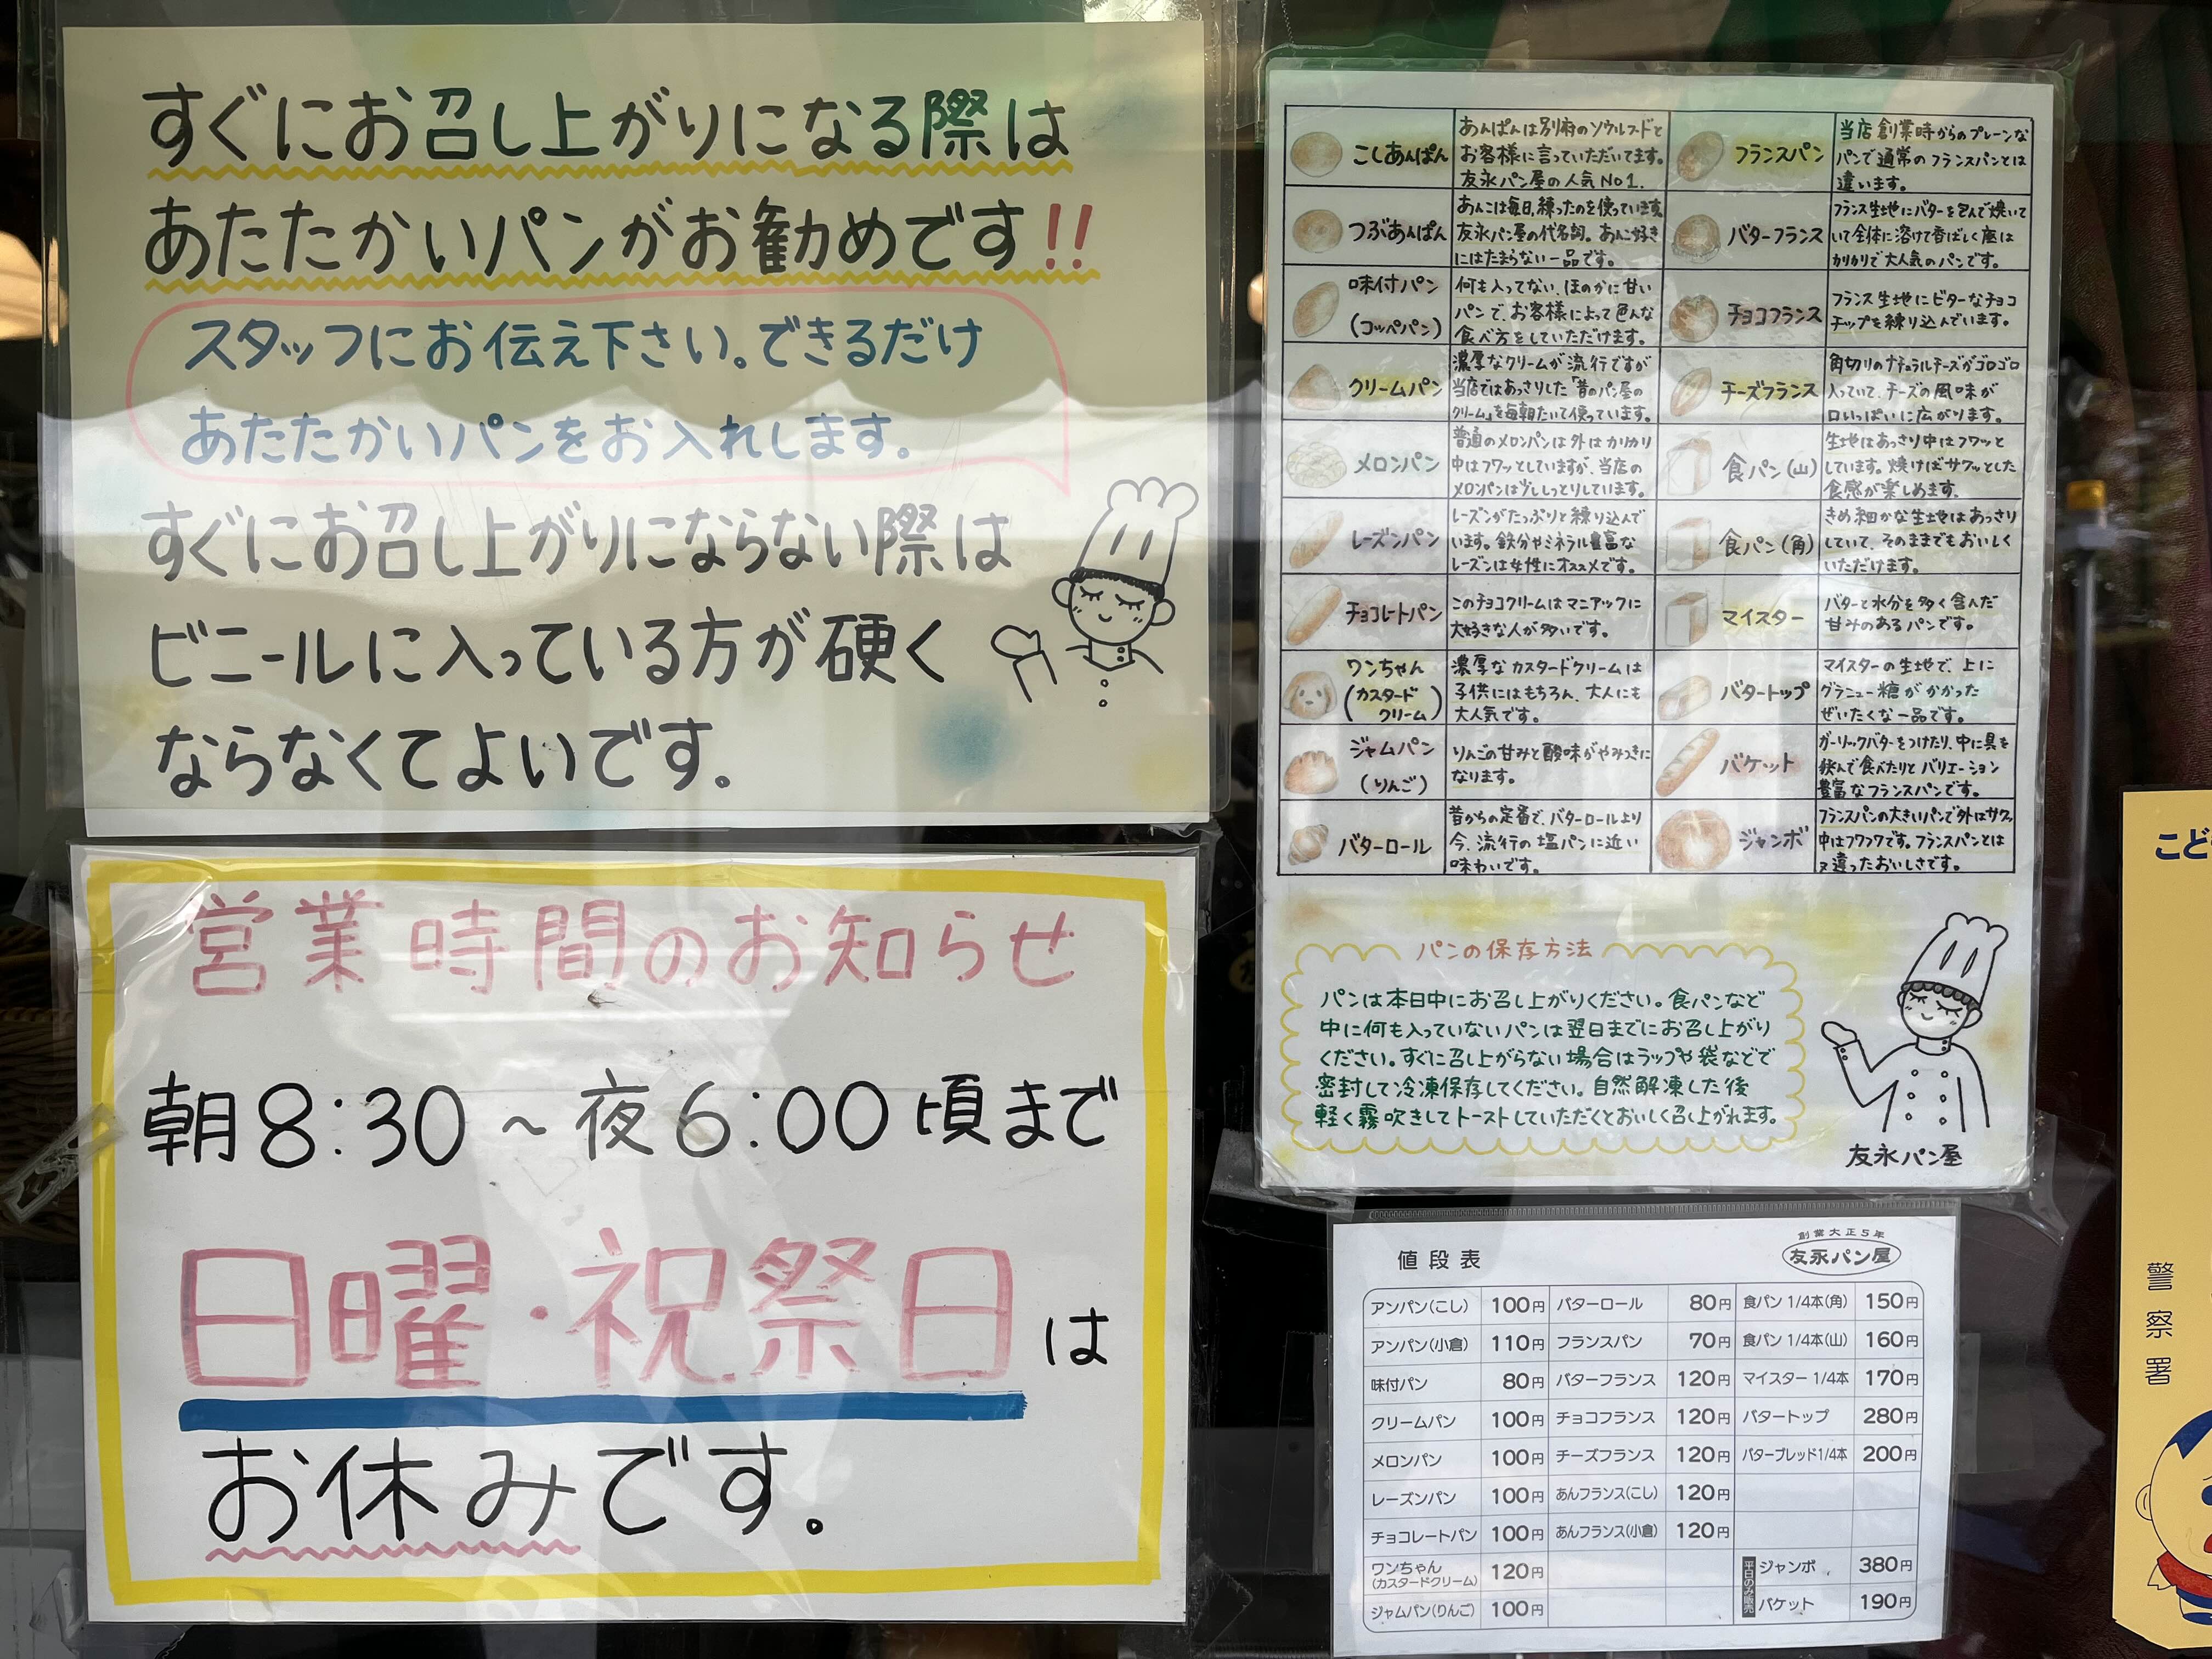 すぐにお召し上がりになる際は
あたたかいパンがお勧めです!!
スタッフにお伝え下さい。できるだけ
あたたかいパンをお入れします。
すぐにお召し上がりにならない際は
ビニールに入っている方が硬く
ならなくてよいです。
営業時間のお知らせ
朝8:30～夜6:00頃まで
日曜・祝祭日は
お休みです。
こしあんぱん
あんぱんは別府のソウルフードと
お客様に言っていただいてます。
友永パン屋の人気No1.
フランスパン
当店創業時からのプレーンな
パンで通常のフランスパンとは
違います。
つぶあんぱん
あんこは毎日、練ったのを使っています。
友永パン屋の代名詞。あんこ好き
にはたまらない一品です。
バターフランス
フランス生地にバターを包んで焼いて
いて全体に溶けて香ばしく底は
カリカリで大人気のパンです。
味付パン
(コッペパン)
何も入ってない、ほのかに甘い
パンで、お客様によって色んな
食べ方をしていただけます。
チョコフランス
フランス生地にビターなチョコ
チップを練り込んでいます。
クリームパン
濃厚なクリームが流行ですが
当店ではあっさりした「昔のパン屋の
クリーム」を毎朝たいて使っています。
チーズフランス
角切りのナチュラルチーズがゴロゴロ
入っていて、チーズの風味が
口いっぱいに広がります。
メロンパン
普通のメロンパンは外はカリカリ
中はフワッとしていますが、当店の
メロンパンは少ししっとりしています。
食パン(山)
生地はあっさり中はフワッと
しています。焼けばサクッとした
食感が楽しめます。
レーズンパン
レーズンがたっぷりと練り込んで
います。鉄分やミネラル豊富な
レーズンは女性にオススメです。
食パン(角)
きめ細かな生地はあっさり
していて、そのままでもおいしく
いただけます。
チョコレートパン
このチョコクリームはマニアックに
大好きな人が多いです。
マイスター
バターと水分を多く含んだ
甘みのあるパンです。
ワンちゃん
(カスタード
クリーム)
濃厚なカスタードクリームは
子供にはもちろん、大人にも
大人気です。
バタートップ
マイスターの生地で、上に
グラニュー糖がかかった
ぜいたくな一品です。
ジャムパン
(りんご)
りんごの甘みと酸味がやみつきに
なります。
バケット
ガーリックバターをつけたり、中に具を
挟んで食べたりとバリエーション
豊富なフランスパンです。
バターロール
昔からの定番で、バターロールより
今、流行の塩パンに近い
味わいです。
ジャンボ
フランスパンの大きいパンで外はサクッ
中はフワフワです。フランスパンとは
又違ったおいしさです。
パンの保存方法
パンは本日中にお召し上がりください。食パンなど
中に何も入っていないパンは翌日までにお召し上がり
ください。すぐに召し上がらない場合はラップや袋などで
密封して冷凍保存してください。自然解凍した後
軽く霧吹きしてトーストしていただくとおいしく召し上がれます。
友永パン屋
値段表
創業大正5年
友永パン屋
アンパン(こし) 100円 バターロール 80円 食パン 1/4本(角) 150円
アンパン(小倉) 110円 フランスパン 70円 食パン 1/4本(山) 160円
味付パン 80円 バターフランス 120円 マイスター 1/4本 170円
クリームパン 100円 チョコフランス 120円 バタートップ 280円
メロンパン 100円 チーズフランス 120円 バターブレッド1/4本 200円
レーズンパン 100円 あんフランス(こし) 120円
チョコレートパン 100円 あんフランス(小倉) 120円
ワンちゃん
(カスタードクリーム) 120円
平日のみ販売
ジャンボ 380円
ジャムパン(りんご) 100円 バケット 190円
こど
警察署